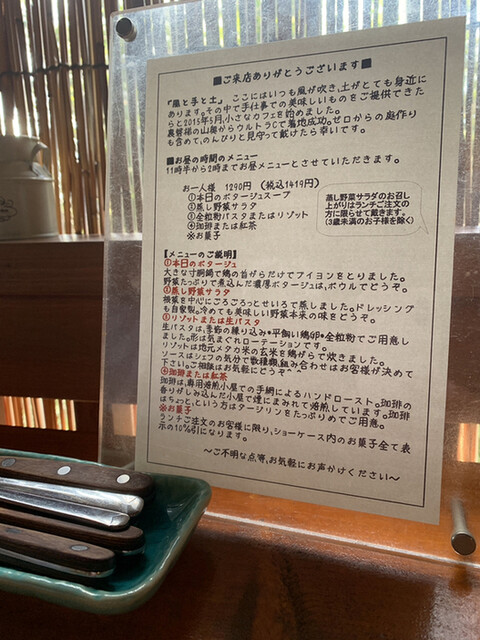 ■ご来店ありがとうございます■
『風と手と土』 ここにはいつも風が吹き、土がとても身近に
あります。その中で手仕事での美味しいものをご提供できた
らと2015年5月、小さなカフェを始めました。
裏磐梯の山奥からウルトラCで着地成功。ゼロからの庭作り
も含めて、のんびりと見守って戴けたら幸いです。
■お昼の時間のメニュー
11時半から2時までお昼メニューとさせていただきます。
お一人様 1290円 (税込1419円)
①本日のポタージュスープ
②蒸し野菜サラダ
③全粒粉パスタまたはリゾット
④珈琲または紅茶
※お菓子
蒸し野菜サラダのお召し
上がりはランチご注文の
方に限らせて戴きます。
(3歳未満のお子様を除く)
【メニューのご説明】
①本日のポタージュ
大きな寸胴鍋で鶏の首がらだけでブイヨンをとりました。
野菜たっぷりで煮込んだ濃厚ポタージュは、ボウルでどうぞ。
②蒸し野菜サラダ
根菜を中心にごろごろっとせいろで蒸しました。ドレッシング
も自家製。冷めても美味しい野菜本来の味をどうぞ。
③リゾットまたは生パスタ
生パスタは、季節の練り込み*平飼い鶏卵*全粒粉でご用意し
ました。形は気まぐれローテーションです。
リゾットは地元メタカ米の玄米を鶏がらで炊きました。
ソースはシェフの気分で数種類、組み合わせはお客様が決めて
下さい。ご相談はお気軽にどうぞ^^
④珈琲または紅茶
珈琲は、専用焙煎小屋での手網によるハンドロースト。珈琲の
香りがしみ込んだ小屋で煙にまみれて焙煎しています。珈琲
はちょっと、という方はダージリンをたっぷりめでご用意。
※お菓子
ランチご注文のお客様に限り、ショーケース内のお菓子全て表
示の10%引になります。
～ご不明な点等、お気軽にお声かけください～